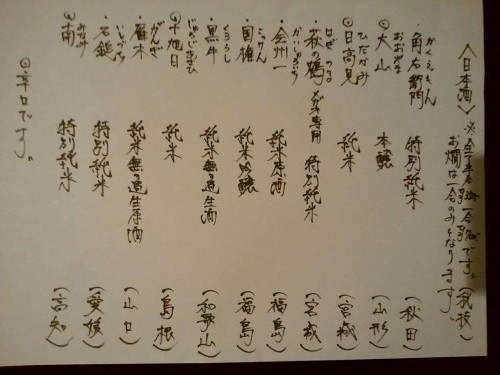 〈日本酒〉 ※全て半合 一合 です。(税抜)
お燗は一合のみとなります。
かくえもん
・角右衛門 特別純米 (秋田)
おおやま
◎大山 本醸 (山形)
ひだかみ
◎日高見 純米 (宮城)
はぎ つる
・萩の鶴 メガネ専用 特別純米 (宮城)
かいしゅういち
・会州一 純米原酒 (福島)
こっけん
・国権 純米吟醸 (福島)
くろうし
・黒牛 (和歌山)
じゅうじあさひ
◎十旭日 純米 (島根)
がんぎ
・雁木 (山口)
いしづち
・石鎚 特別純米 (愛媛)
みなみ
◎南 特別純米 (高知)
◎辛口です。